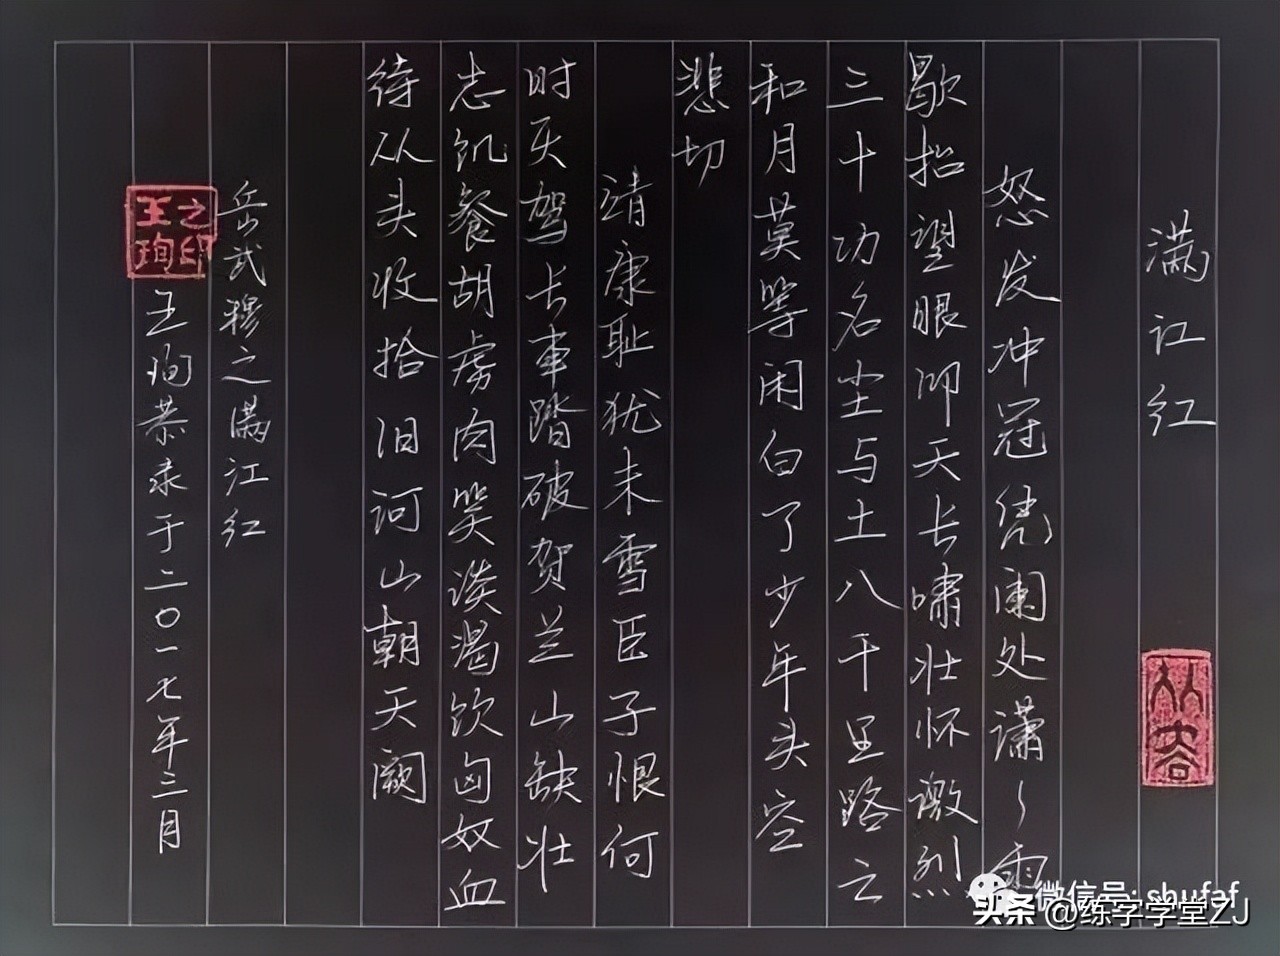 满江红
怒发冲冠凭阑处潇〻雨
歇抬望眼仰天长啸壮怀激烈
三十功名尘与土八千里路云
和月莫等闲白了少年头空
悲切
靖康耻犹未雪臣子恨何
时灭驾长车踏破贺兰山缺壮
志饥餐胡虏肉笑谈渴饮匈奴血
待从头收拾旧河山朝天阙
岳武穆之满江红
王珣恭录于二〇一七年三月
王珣之印
微信号: shufaf
头条 @练字学堂ZJ